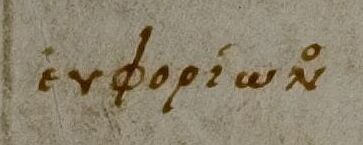 ευφορίων